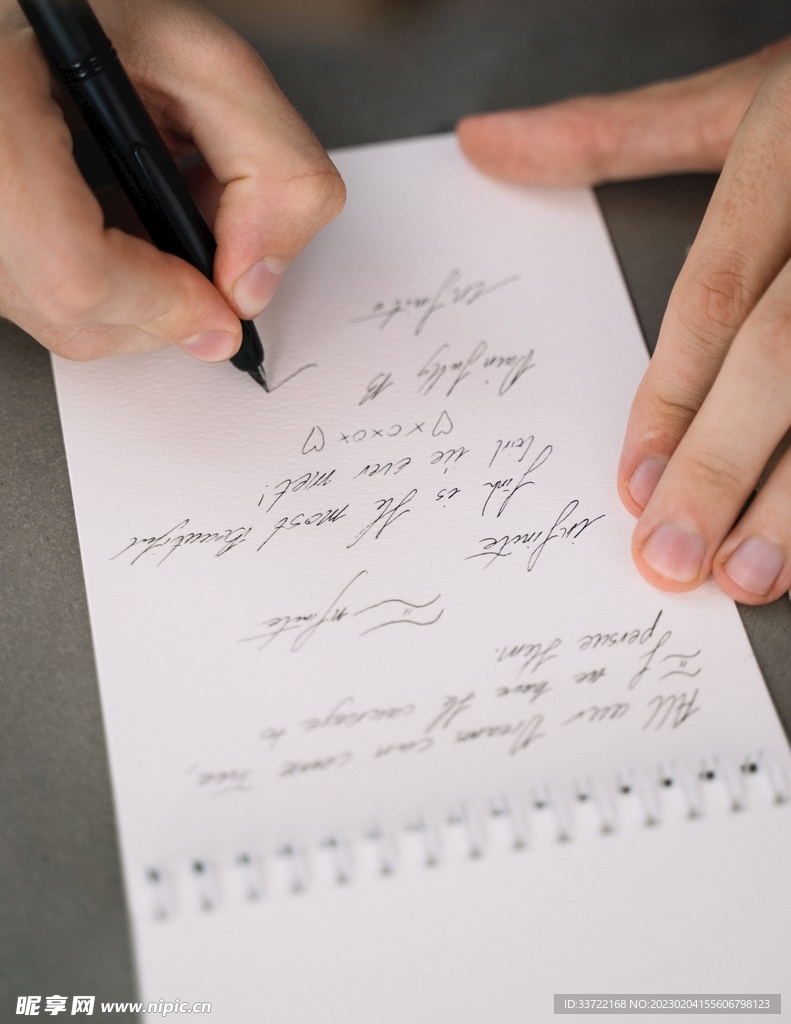 All our Dream can come True,
if we have the courage to
persue them.
infinite
infinite
Link is the most Beautiful
Soul we ever met!
♡xoxox♡
Painfully B
infinite
昵享网 www.nipic.cn
ID:33722168 NO:20230204155606798123